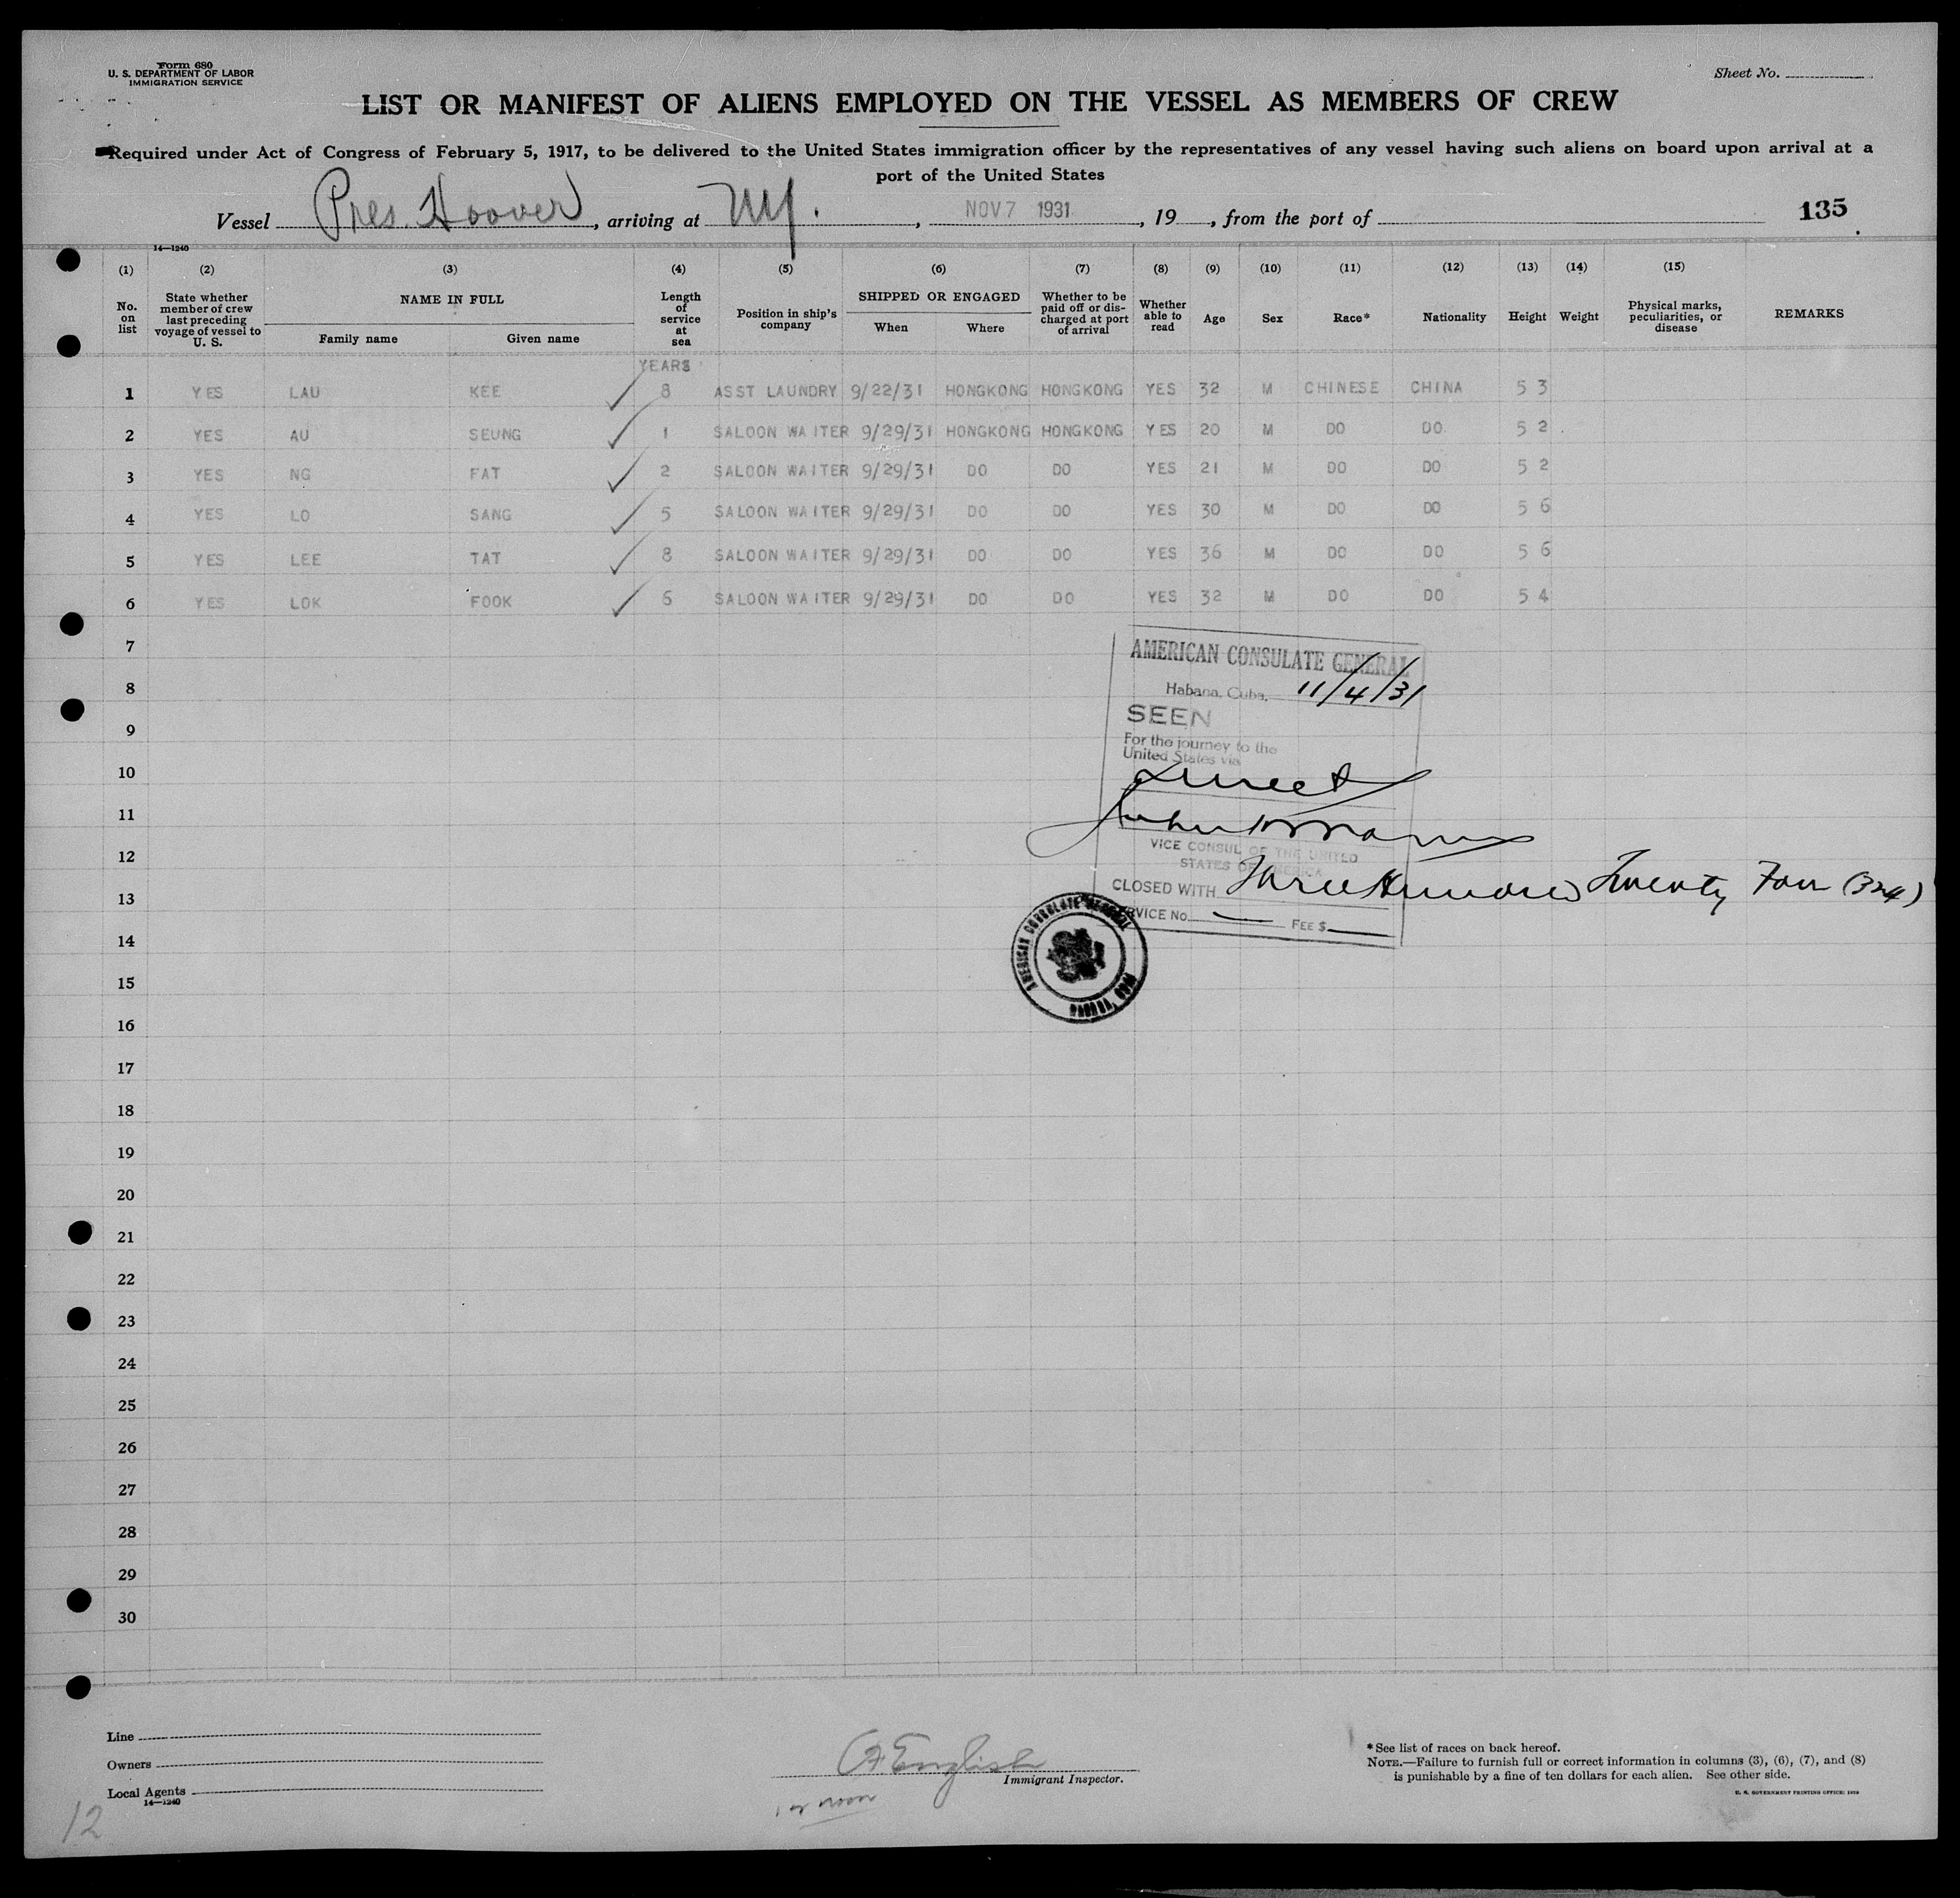 Form 680
U. S. DEPARTMENT OF LABOR
IMMIGRATION SERVICE
Sheet No.
LIST OR MANIFEST OF ALIENS EMPLOYED ON THE VESSEL AS MEMBERS OF CREW
Required under Act of Congress of February 5, 1917, to be delivered to the United States immigration officer by the representatives of any vessel having such aliens on board upon arrival at a
port of the United States
Vessel Pres. Hoover, arriving at NY., NOV 7 1931, 19 , from the port of 135
14—1240
(1) (2) (3) (4) (5) (6) (7) (8) (9) (10) (11) (12) (13) (14) (15)
No. on list
State whether member of crew last preceding voyage of vessel to U. S.
NAME IN FULL
Family name Given name
Length of service at sea
Position in ship's company
SHIPPED OR ENGAGED
When Where
Whether to be paid off or discharged at port of arrival
Whether able to read
Age Sex Race* Nationality Height Weight
Physical marks, peculiarities, or disease
REMARKS
YEARS
1 YES LAU KEE ✓ 8 ASST LAUNDRY 9/22/31 HONGKONG HONGKONG YES 32 M CHINESE CHINA 5 3
2 YES AU SEUNG ✓ 1 SALOON WAITER 9/29/31 HONGKONG HONGKONG YES 20 M DO DO 5 2
3 YES NG FAT ✓ 2 SALOON WAITER 9/29/31 DO DO YES 21 M DO DO 5 2
4 YES LO SANG ✓ 5 SALOON WAITER 9/29/31 DO DO YES 30 M DO DO 5 6
5 YES LEE TAT ✓ 8 SALOON WAITER 9/29/31 DO DO YES 36 M DO DO 5 6
6 YES LOK FOOK ✓ 6 SALOON WAITER 9/29/31 DO DO YES 32 M DO DO 5 4
7
8
9
10
11
12
13
14
15
16
17
18
19
20
21
22
23
24
25
26
27
28
29
30
AMERICAN CONSULATE GENERAL
Habana, Cuba, 11/4/31
SEEN
For the journey to the
United States via
Direct
VICE CONSUL OF THE UNITED
STATES OF AMERICA
CLOSED WITH Three Hundred Twenty Four (324)
SERVICE No. — FEE $ —
AMERICAN CONSULATE GENERAL
HABANA, CUBA
Line
Owners
Local Agents
14—1240
12
English
Immigrant Inspector.
12 noon
*See list of races on back hereof.
NOTE.—Failure to furnish full or correct information in columns (3), (6), (7), and (8)
is punishable by a fine of ten dollars for each alien. See other side.
U. S. GOVERNMENT PRINTING OFFICE: 1929